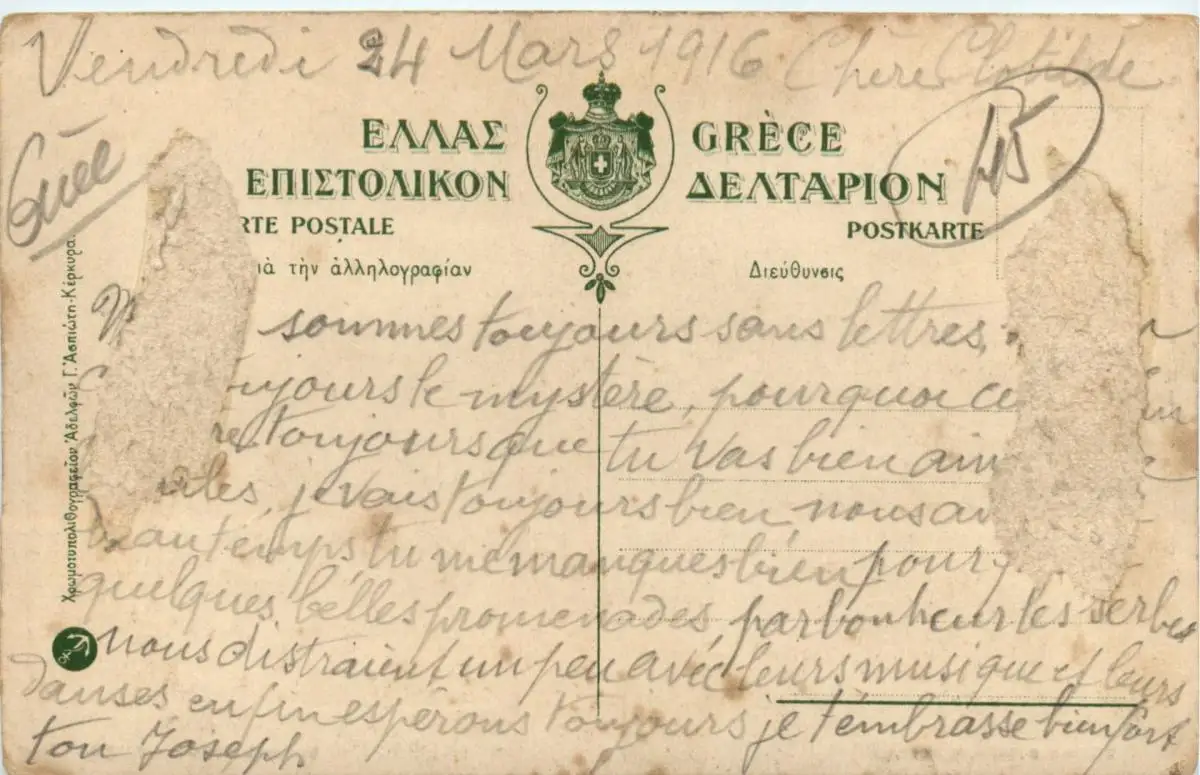 Vendredi 24 Mars 1916 Chère Clotilde
45
ΕΛΛΑΣ GRÈCE
ΕΠΙΣΤΟΛΙΚΟΝ ΔΕΛΤΑΡΙΟΝ
RTE POSTALE POSTKARTE
ιὰ τὴν ἀλληλογραφίαν Διεύθυνσις
Χρωμοτυπολιθογραφεῖον Ἀδελφῶν Γ. Ἀσπιώτη-Κέρκυρα.
sommes toujours sans lettres,
ujours le mystère, pourquoi ce
re toujours que tu vas bien ain
je vais toujours bien, nous av
beau temps tu me manques bien pour
quelques belles promenades, par bonheur les serbes
nous distraient un peu avec leurs musique et leurs
danses enfin espérons toujours je t'embrasse bien fort
ton Joseph